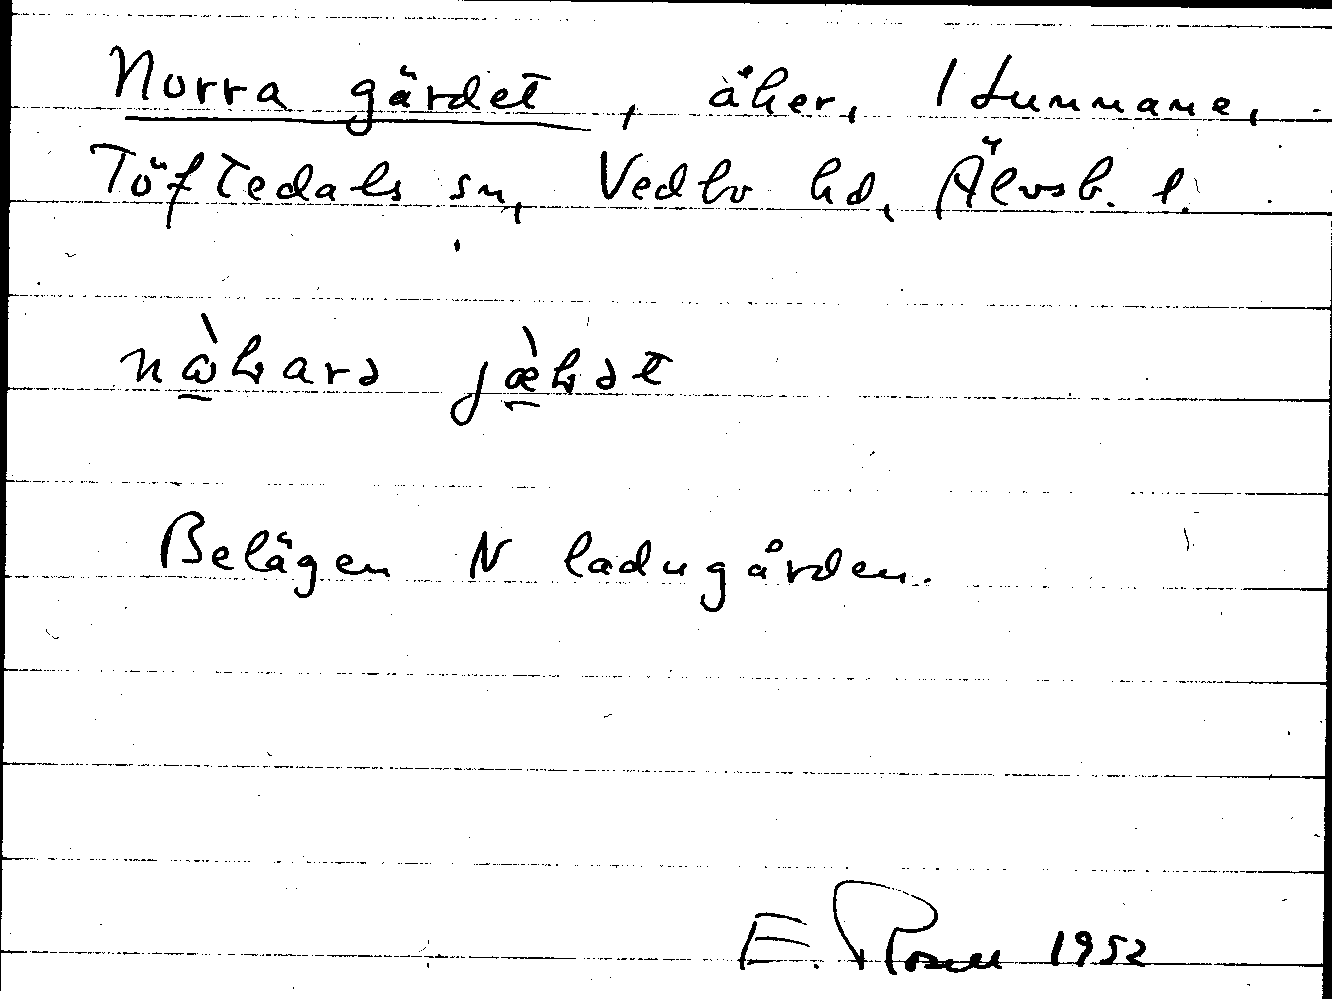 Norra gärdet, åker, 1 Hunnane,
Töftedals sn, Vedbo hd, Älvsb. l.
Belägen N ladugården.
E. Rosell 1952